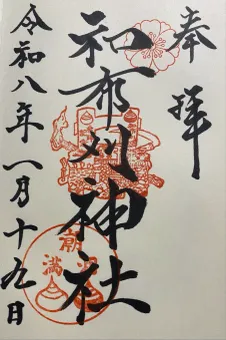 奉拝
和布刈神社
令和八年一月十九日
満